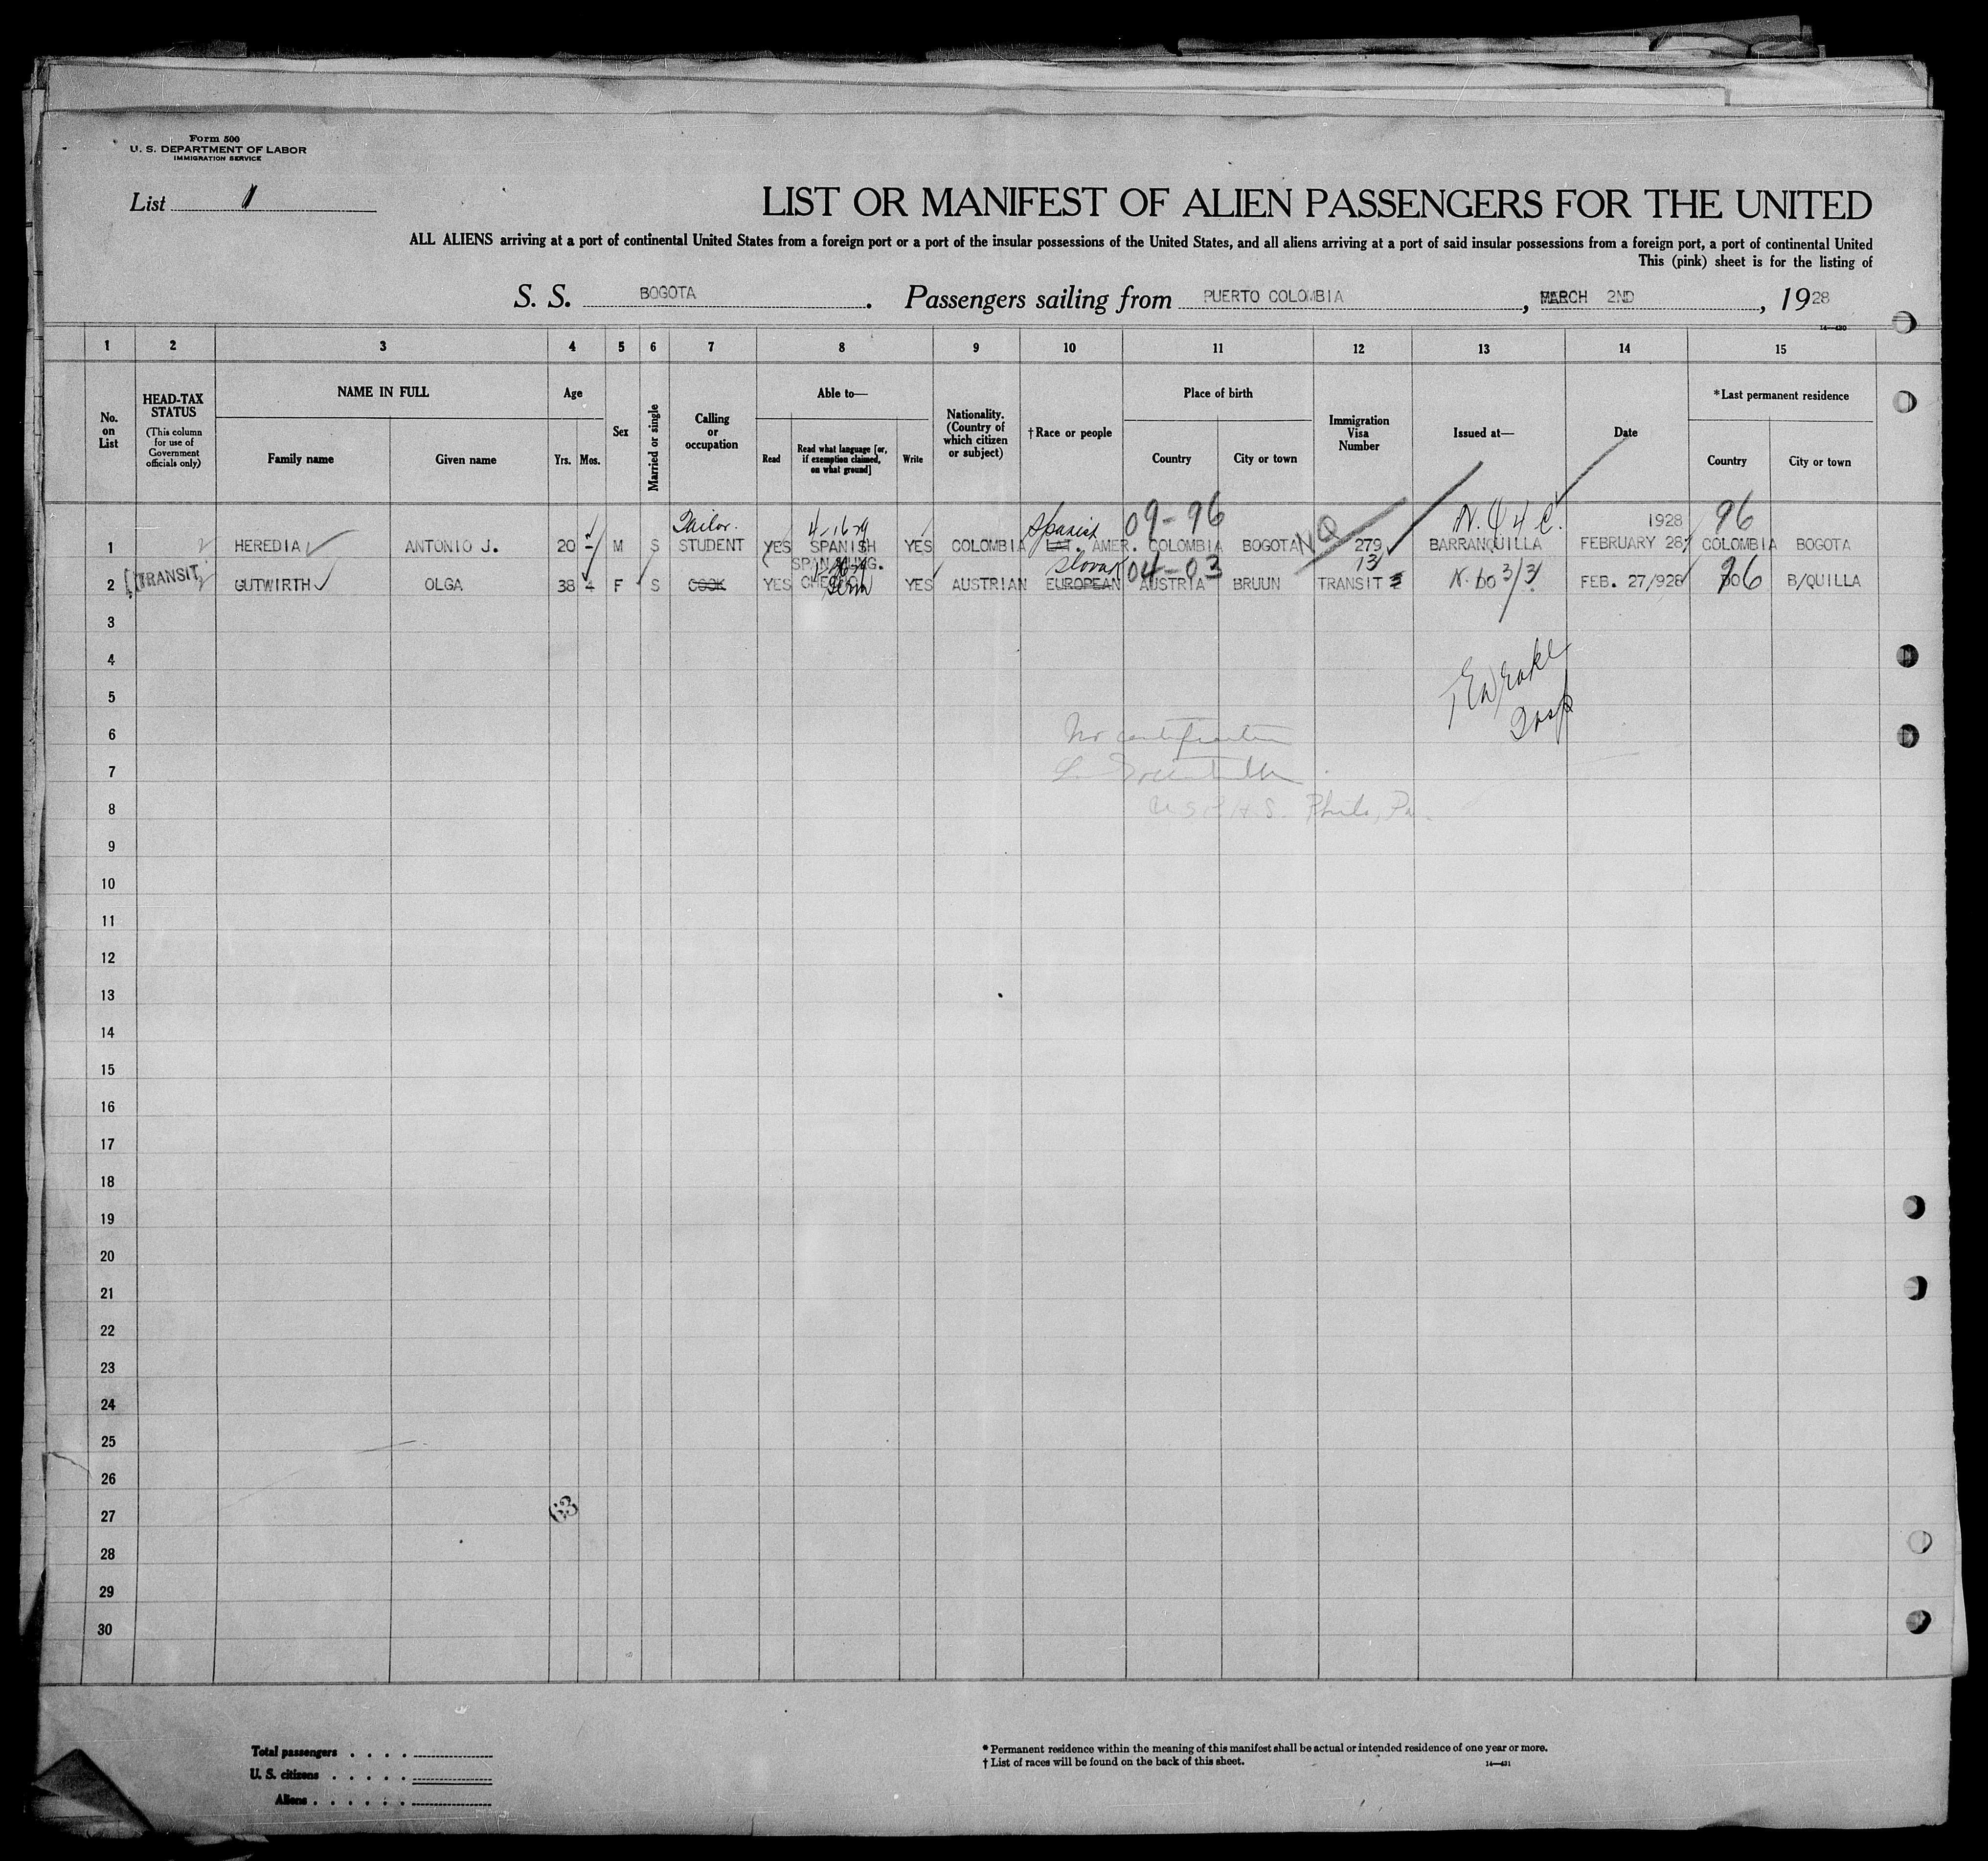 Form 500
U. S. DEPARTMENT OF LABOR
IMMIGRATION SERVICE
List 1
LIST OR MANIFEST OF ALIEN PASSENGERS FOR THE UNITED
ALL ALIENS arriving at a port of continental United States from a foreign port or a port of the insular possessions of the United States, and all aliens arriving at a port of said insular possessions from a foreign port, a port of continental United
This (pink) sheet is for the listing of
S. S. BOGOTA. Passengers sailing from PUERTO COLOMBIA, MARCH 2ND, 1928
14—430
1 2 3 4 5 6 7 8 9 10 11 12 13 14 15
No. on List
HEAD-TAX STATUS (This column for use of Government officials only)
NAME IN FULL
Family name
Given name
Age
Yrs. Mos.
Sex
Married or single
Calling or occupation
Able to—
Read
Read what language [or, if exemption claimed, on what ground]
Write
Nationality. (Country of which citizen or subject)
†Race or people
Place of birth
Country
City or town
Immigration Visa Number
Issued at—
Date
*Last permanent residence
Country
City or town
Tailor. Spanish 09-96 NQ N.Q 4 C. 1928 96
1 HEREDIA ANTONIO J. 20 - M S STUDENT YES SPANISH YES COLOMBIA LAT. AMER. COLOMBIA BOGOTA 279 BARRANQUILLA FEBRUARY 28 COLOMBIA BOGOTA
Slovak 04-03 13
2 TRANSIT GUTWIRTH OLGA 38 4 F S COOK YES Germ YES AUSTRIAN EUROPEAN AUSTRIA BRUUN TRANSIT 3/3 FEB. 27/928 96 B/QUILLA
3
4
5
Insp
6
No
7
8
U S P. H. S. Phila, Pa.
9
10
11
12
13
14
15
16
17
18
19
20
21
22
23
24
25
26
27
63
28
29
30
Total passengers
U. S. citizens
Aliens
* Permanent residence within the meaning of this manifest shall be actual or intended residence of one year or more.
† List of races will be found on the back of this sheet.
14—431